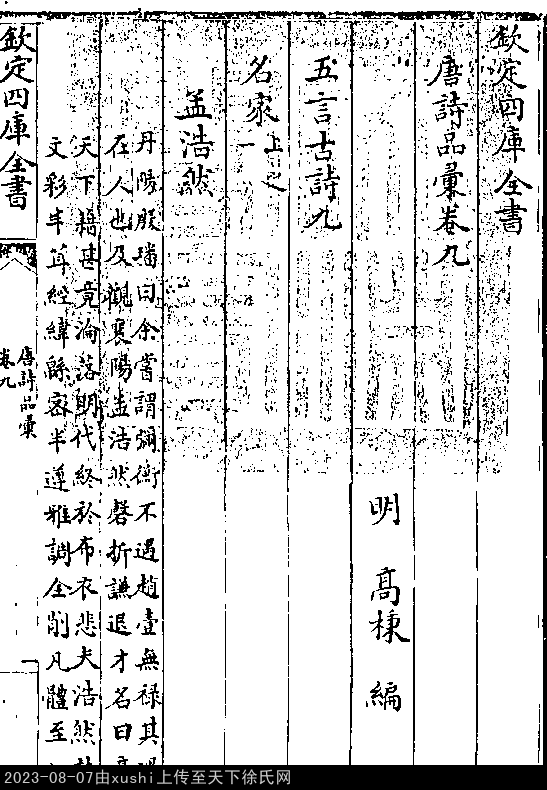 欽定四庫全書
唐詩品彙卷九
明 高棅 編
五言古詩九
名家上之一
孟浩然
丹陽殷璠曰余嘗謂禰衡不遇趙壹無禄其
在人也及觀襄陽孟浩然磬折謙退才名日
天下籍甚竟淪落明代終於布衣悲夫浩然
文彩丰茸經緯緜密半遵雅調全削凡體至
欽定四庫全書
唐詩品彙
卷九
2023-08-07由xushi上传至天下徐氏网